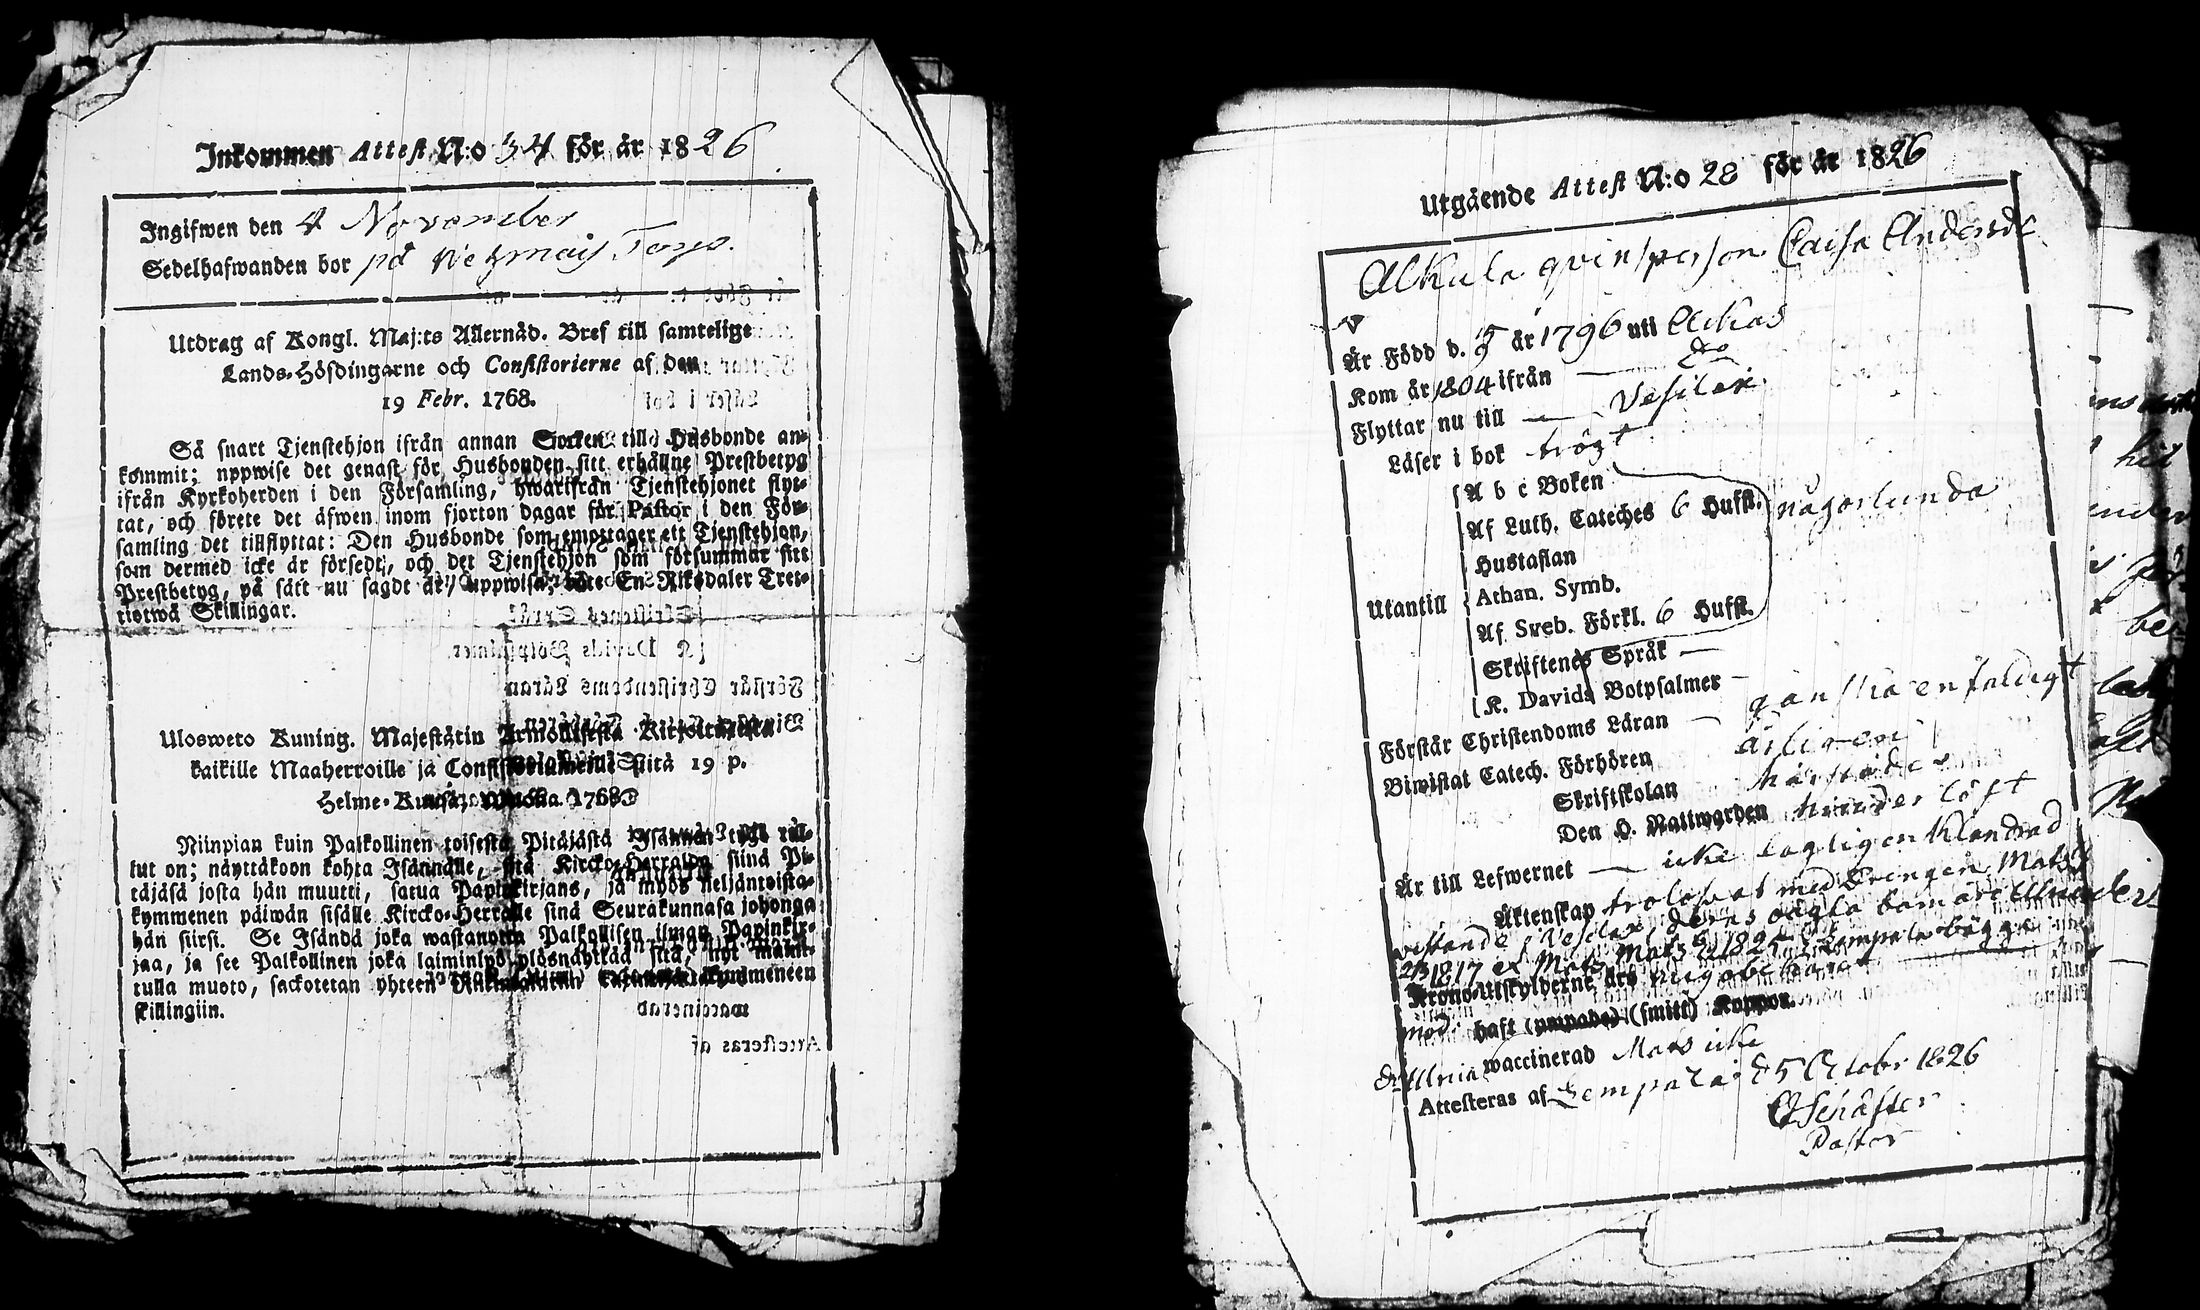 Inkommen Attest N:o 34 för år 1826
Ingifwen den 4 November
Sedelhafwanden bor på
Utdrag af Kongl. Maj:ts Allernåd. Bref till samtelige
Lands-Höfdingarne och Consistorierne af den
19 Febr. 1768.
Så snart Tjenstehjon ifrån annan Socken till Husbonde an-
kommit; uppwise det genast för Husbonden sitt erhållne Prestbetyg
ifrån Kyrkoherden i den Församling, hwarifrån Tjenstehjonet flyt-
tat, och förete det äfwen inom fjorton dagar för Pastor i den För-
samling det tillflyttat: Den Husbonde som emottager ett Tjenstehjon,
som dermed icke är försedt, och det Tjenstehjon som försummar sitt
Prestbetyg, på sätt nu sagdt är, uppwisa, böte En Riksdaler Tret-
tiotwå Skillingar.
Ulosweto Kuning. Majestätin Armollisesta Kirjoituxesta
kaikille Maaherroille ja Consistoriumeille siitä 19 p.
Helme-Kuusa, wuonna 1768.
Niinpian kuin Palkollinen toisesta Pitäjästä Isännän tygö tul-
lut on; näyttäkoon kohta Isännälle, sitä Kircko-Herralda siinä Pi-
täjäsä josta hän muutti, satua Papinkirjans, ja myös neljäntoista-
kymmenen päiwän sisälle Kircko-Herralle sinä Seurakunnasa johonga
hän siirsi. Se Isändä joka wastanotta Palkollisen ilman Papinkir-
jaa, ja see Palkollinen joka laiminlyö ylösnäyttää sitä, nyt mainit-
tulla muoto, sackotetan yhteen Riikintaleriin kahteenneljättäkymmeneen
skillingiin.
Utgående Attest N:o 28 för år 1826
Alkula qvinsperson Caisa Andersdr
Är Född d. 5/9 år 1796 uti Ackas
Kom år 1804 ifrån — Do
Flyttar nu till — Vesilax
Läser i bok trögt
A b c Boken
Af Luth. Cateches 6 Hufst. någorlunda
Hustaflan
Athan. Symb.
Utantill
Af Sveb. Förkl. 6 Hufst.
Skriftenes Språk —
K. Davids Botpsalmer —
Förstår Christendoms Läran — ganska enfaldigt
Biwistat Catech. Förhören årligen
Skriftskolan härstädes
Den H. Nattwarden
Är till Lefwernet — icke lagligen klandrad
Äktenskap trolofvad med Drengen Mats
vistande i Vesilax, deras oägta barn äro Ulrica
1817 Mats 1825 i Lempälä bägge
Krono-Utskylderne äro
mod. haft (ympade) (smitt) Koppor
Ulrica waccinerad Mats icke
Attesteras af Lempälä d 5 Octobr 1826
Schäfter
Pastor